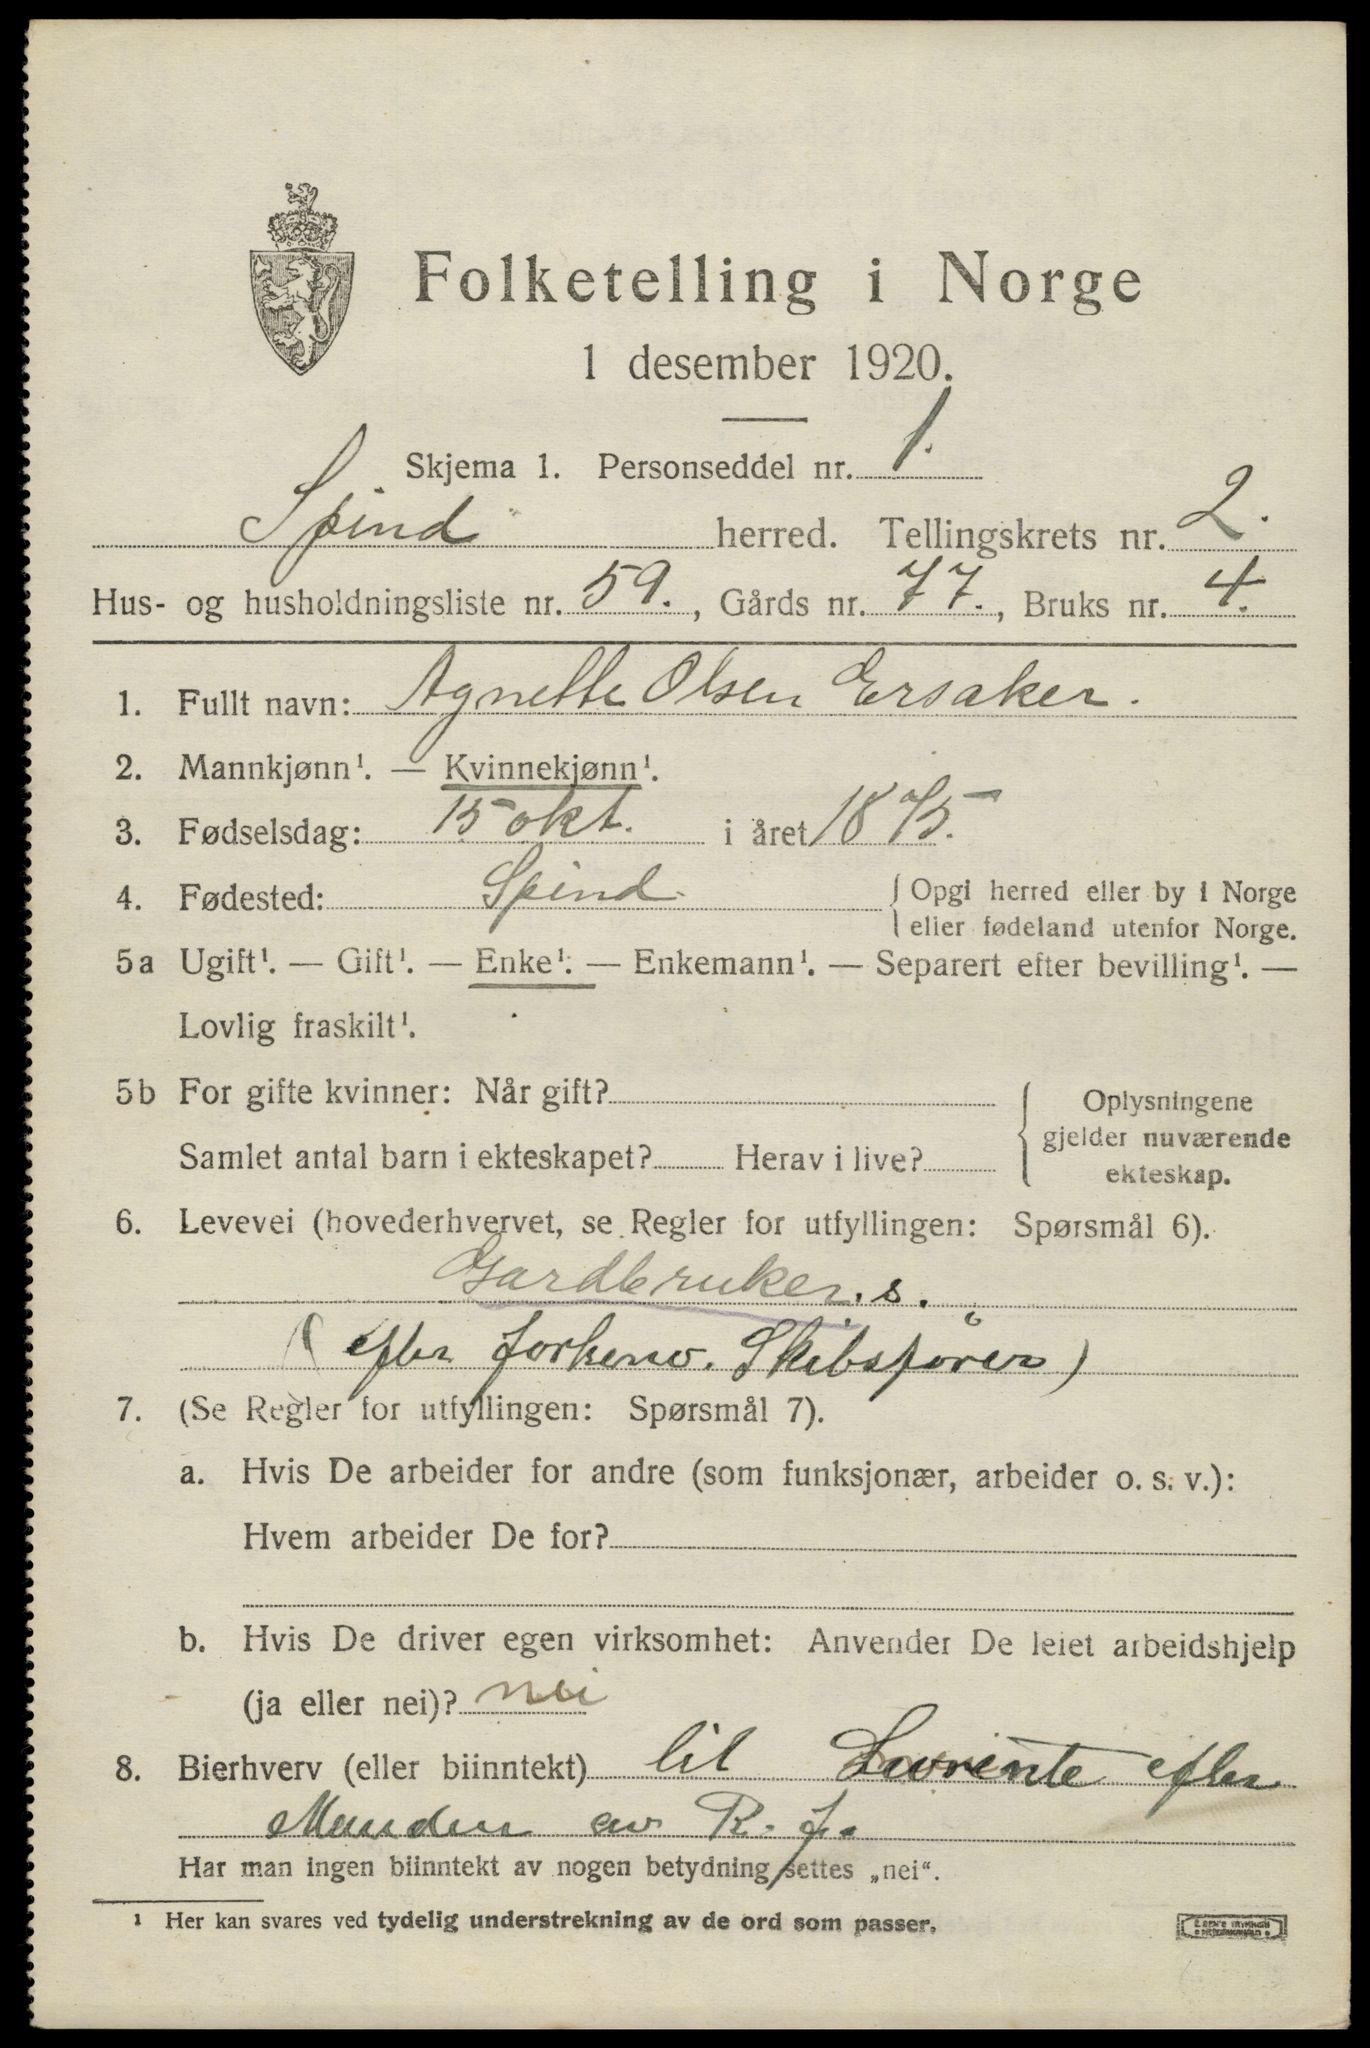 Folketelling i Norge
1 desember 1920.
Skjema 1. Personseddel nr. 1.
Spind herred. Tellingskrets nr. 2.
Hus- og husholdningsliste nr. 59., Gårds nr. 77., Bruks nr. 4.
1. Fullt navn: Agnette Olsen Ersaker.
2. Mannkjønn¹. — Kvinnekjønn¹.
3. Fødselsdag: 15 okt. i året 1875.
4. Fødested: Spind { Opgi herred eller by i Norge
eller fødeland utenfor Norge.
5a Ugift¹. — Gift¹. — Enke¹. — Enkemann¹. — Separert efter bevilling¹. —
Lovlig fraskilt¹.
5b For gifte kvinner: Når gift?
Samlet antal barn i ekteskapet? Herav i live?
Oplysningene
gjelder nuværende
ekteskap.
6. Levevei (hovederhvervet, se Regler for utfyllingen: Spørsmål 6).
Gardbruker. s.
( efter forhenv. Skibsfører)
7. (Se Regler for utfyllingen: Spørsmål 7).
a. Hvis De arbeider for andre (som funksjonær, arbeider o. s. v.):
Hvem arbeider De for?
b. Hvis De driver egen virksomhet: Anvender De leiet arbeidshjelp
(ja eller nei)? nei
8. Bierhverv (eller biinntekt) lit Livrente efter
Manden av R. f.
Har man ingen biinntekt av nogen betydning settes „nei“.
¹ Her kan svares ved tydelig understrekning av de ord som passer.